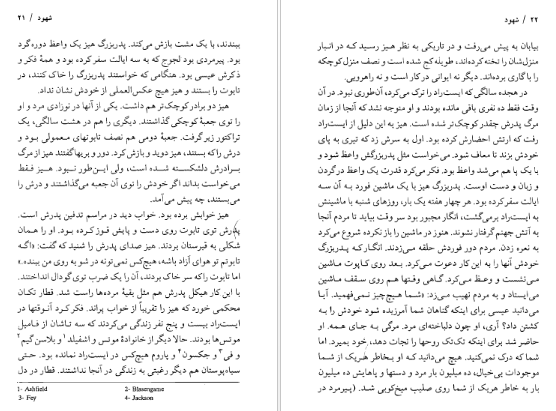 شهود / ۲۱
ببندند، با یک مشت بازش می‌کند. پدربزرگ هیز یک واعظ دوره‌گرد
بود. پیرمردی بود لجوج که به سه ایالت سفر کرده بود و همۀ فکر و
ذکرش عیسی بود. هنگامی که خواستند پدربزرگ را خاک کنند، در
تابوت را بستند و هیز هیچ عکس‌العملی از خودش نشان نداد.
هیز دو برادر کوچک‌تر هم داشت. یکی از آنها در نوزادی مرد و او
را توی جعبۀ کوچکی گذاشتند. دیگری را هم در هشت سالگی، یک
تراکتور زیر گرفت. جعبۀ دومی هم نصف تابوتهای معمولی بود و
درش را که بستند، هیز دوید و بازش کرد. دور و بریها گفتند هیز از مرگ
برادرش دلشکسته شده است، ولی این‌طور نبود. هیز فقط
می‌خواست بداند اگر خودش را توی آن جعبه می‌گذاشتند و درش را
می‌بستند، چه پیش می‌آمد.
هیز خوابش برده بود. خواب دید در مراسم تدفین پدرش است.
پدرش توی تابوت روی دست و پایش قوز کرده بود. او را همان
شکلی به قبرستان بردند. هیز صدای پدرش را شنید که گفت: «اگه
تابوتم تو هوای آزاد باشه، هیچ‌کس نمی‌تونه در شو به روی من ببنده.»
اما تابوت را که سر خاک بردند، آن را یک ضرب توی گودال انداختند.
با این کار هیکل پدرش هم مثل بقیۀ مرده‌ها راست شد. قطار تکان
محکمی خورد که هیز را تقریباً از خواب پراند. فکر کرد آنوقتها در
ایست‌راد بیست و پنج نفر زندگی می‌کردند که سه تاشان از فامیل
موتس‌ها بودند. حالا دیگر از خانوادۀ موتس و اشفیلد۱ و بلاسن گیم۲
و فی۳ و جکسون۴ و پاروم هیچ‌کس در ایست‌راد نمانده بود. حتی
سیاه‌پوستان هم دیگر رغبتی به زندگی در آنجا نداشتند. قطار در دل
1- Ashfield
2- Blasengame
3- Fey
4- Jackson
۲۲ / شهود
بیابان به پیش می‌رفت و در تاریکی به نظر هیز رسید که در انبار
منزل‌شان را تخته کرده‌اند، طویله کج شده است و نصف منزل کوچکه
را با گاری برده‌اند. دیگر نه ایوانی در کار است و نه راهرویی.
در هجده سالگی که ایست‌راد را ترک می‌کرد، آن‌طوری نبود. آن
وقت فقط ده نفری باقی مانده بودند و او متوجه نشد که آنجا از زمان
مرگ پدرش چقدر کوچک‌تر شده است. هیز به این دلیل از ایست‌راد
رفت که ارتش احضارش کرده بود. اول به سرش زد که تیری به پای
خودش بزند تا معاف شود. می‌خواست مثل پدربزرگش واعظ شود و
با یک پا هم می‌شد واعظ بود. فکر می‌کرد قدرت یک واعظ در گردن
و زبان و دست اوست. پدربزرگ هیز با یک ماشین فورد به آن سه
ایالت سفر کرده بود. هر چهار هفته یک بار، روزهای شنبه با ماشینش
به ایست‌راد برمی‌گشت، انگار مجبور بود سر وقت بیاید تا مردم آنجا
به آتش جهنم گرفتار نشوند. هنوز در ماشین را باز نکرده شروع می‌کرد
به نعره زدن. مردم دور فوردش حلقه می‌زدند. انگار که پدربزرگ
خودش آنها را به این کار دعوت می‌کرد. بعد روی کاپوت ماشین
می‌نشست و وعظ می‌کرد. گاهی وقتها هم روی سقف ماشین
می‌ایستاد و به مردم نهیب می‌زد: «شما هیچ‌چیز نمی‌فهمید. آیا
می‌دانید عیسی برای اینکه گناهان شما آمرزیده شود خودش را به
کشتن داد؟ آری، او چون دلباخته‌ای مرد. مرگی به جای همه. او
حاضر شد برای اینکه تک‌تک روحها را نجات دهد، خود بمیرد. اما
شما که درک نمی‌کنید. هیچ می‌دانید که او بخاطر هریک از شما
موجودات بی‌خیال، ده میلیون بار مرد و دستها و پاهایش ده میلیون
بار به خاطر هریک از شما روی صلیب میخ‌کوبی شد. (پیرمرد در